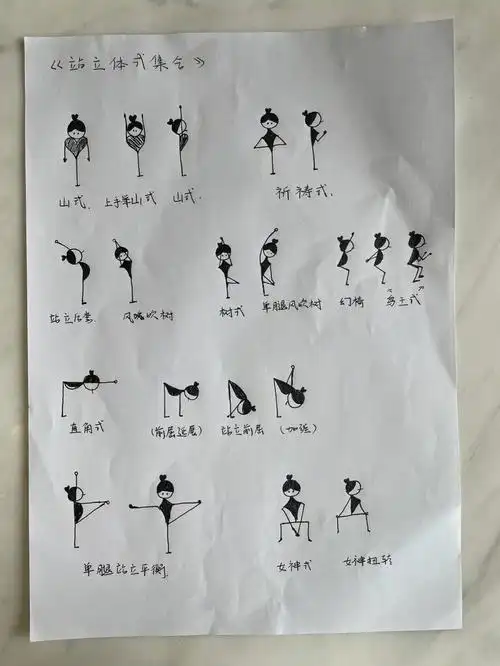 《站立体式集合》
山式. 上手举山式 山式. 祈祷式.
站立后弯 风吹树 树式 单腿风吹树 幻椅
直角式 (前屈延展) 站立前屈 (加强)
单腿站立平衡. 女神式 女神扭转